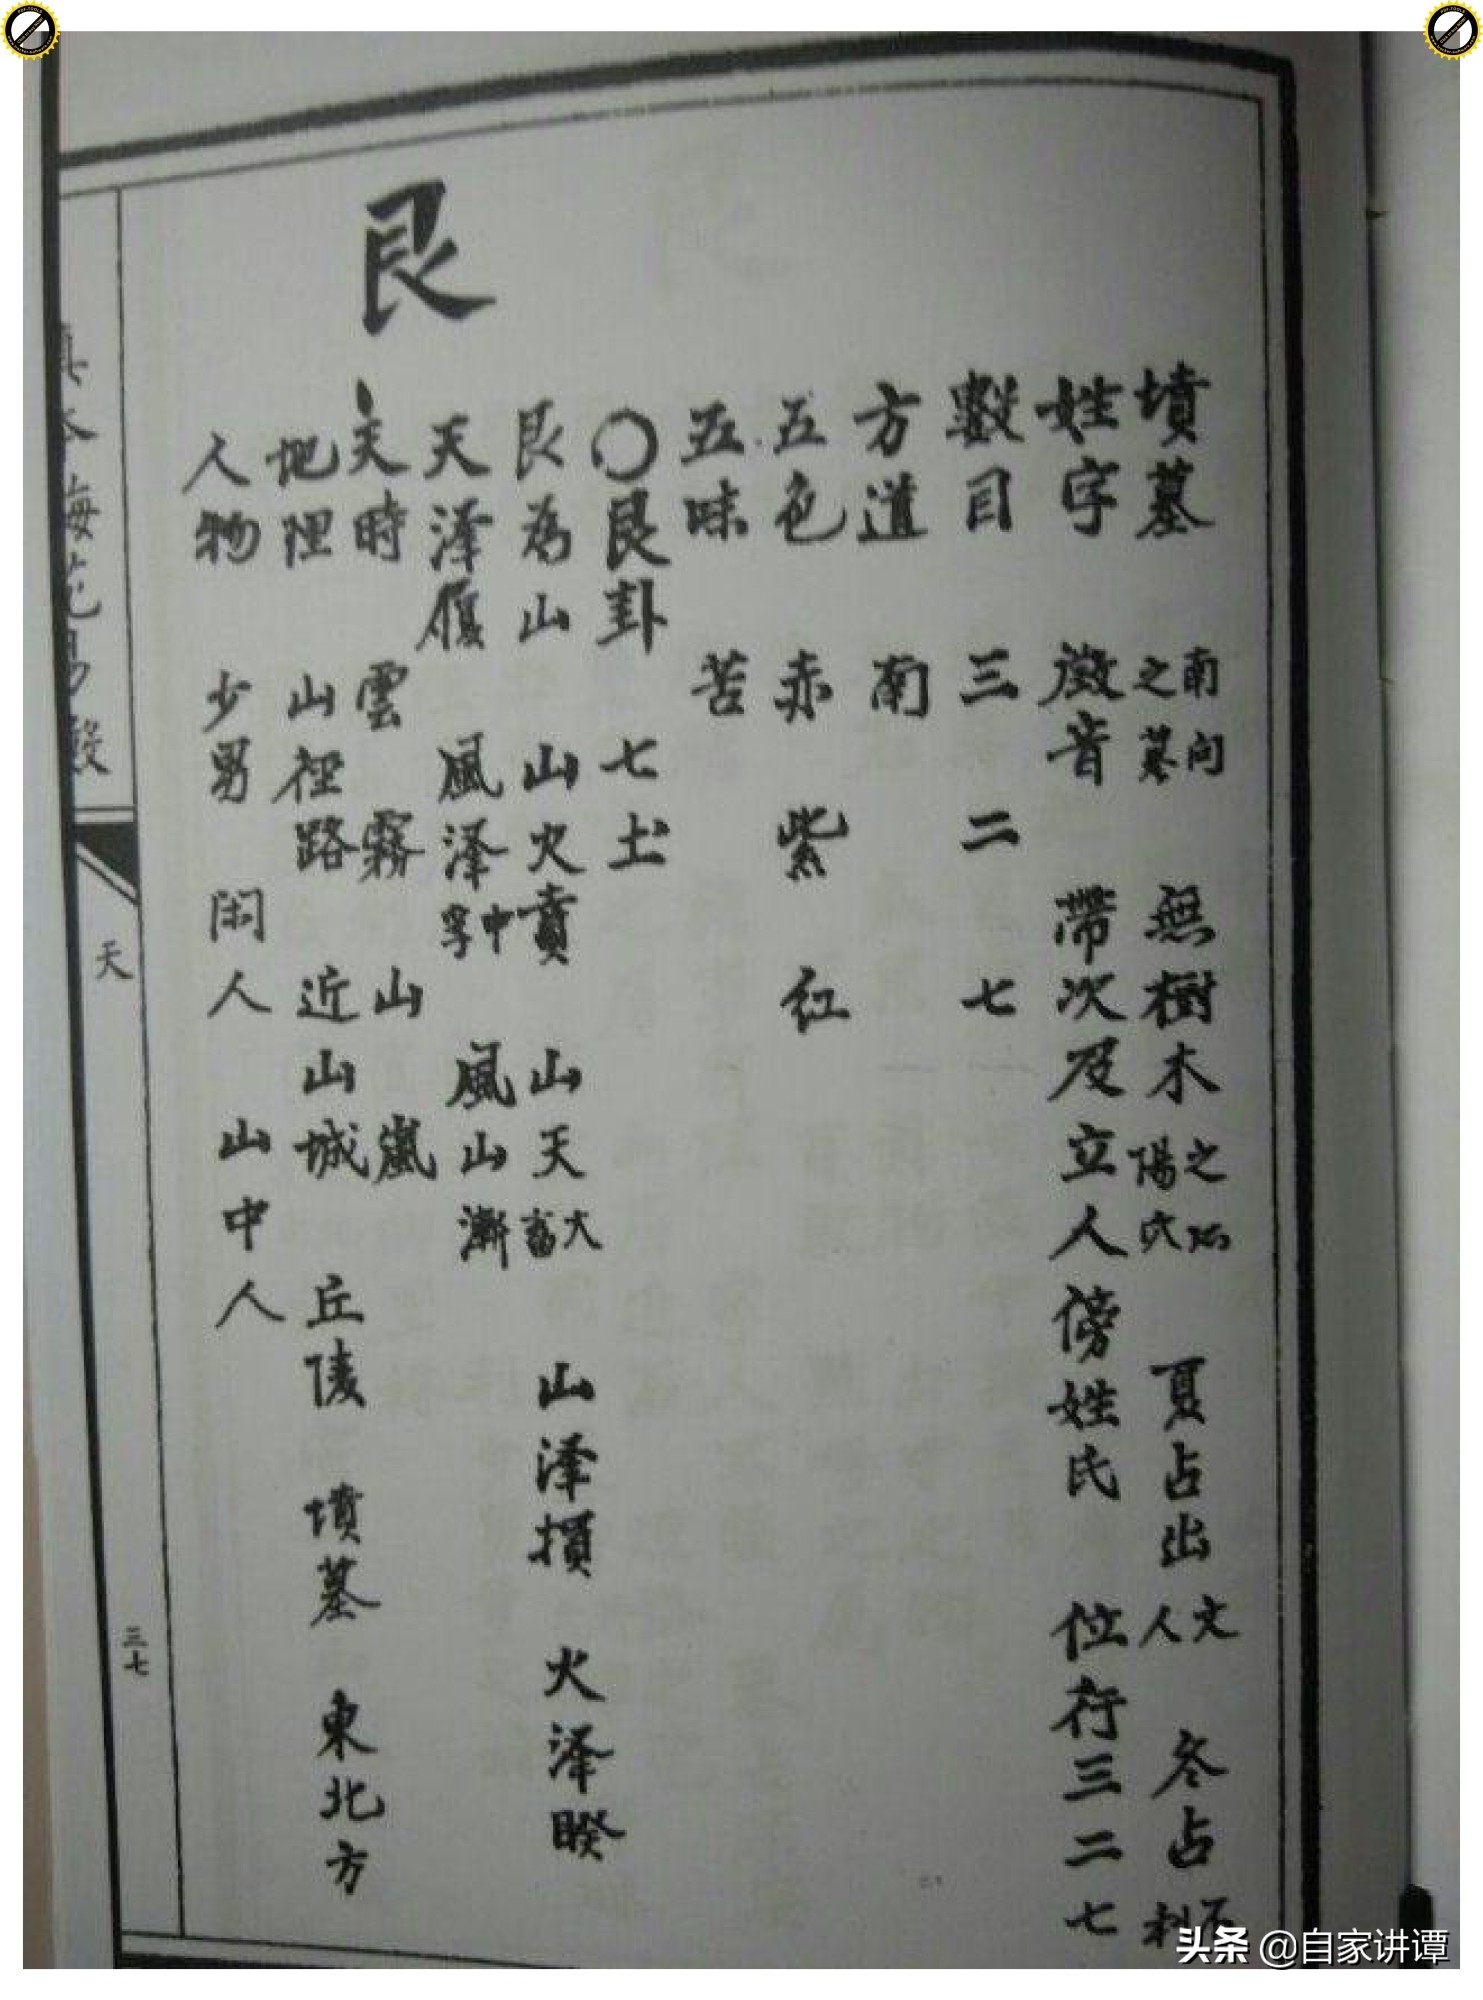 墳墓　南向之墓　無樹木　之所陽穴　夏占出文人　冬占不利
姓字　徵音　帶次及立人傍姓氏　位行三二七
數目　三　二　七
方道　南
五色　赤　紫　紅
五味　苦
〇艮卦　七　土
艮為山　山火賁　山天大畜　山泽損　火泽睽
天泽履　風泽中孚　風山漸
艮
天時　雲　霧　山　嵐
地理　山徑路　近山城　丘陵　墳墓　東北方
人物　少男　闲人　山中人
梅花易数
天
三七
头条 @自家讲谭